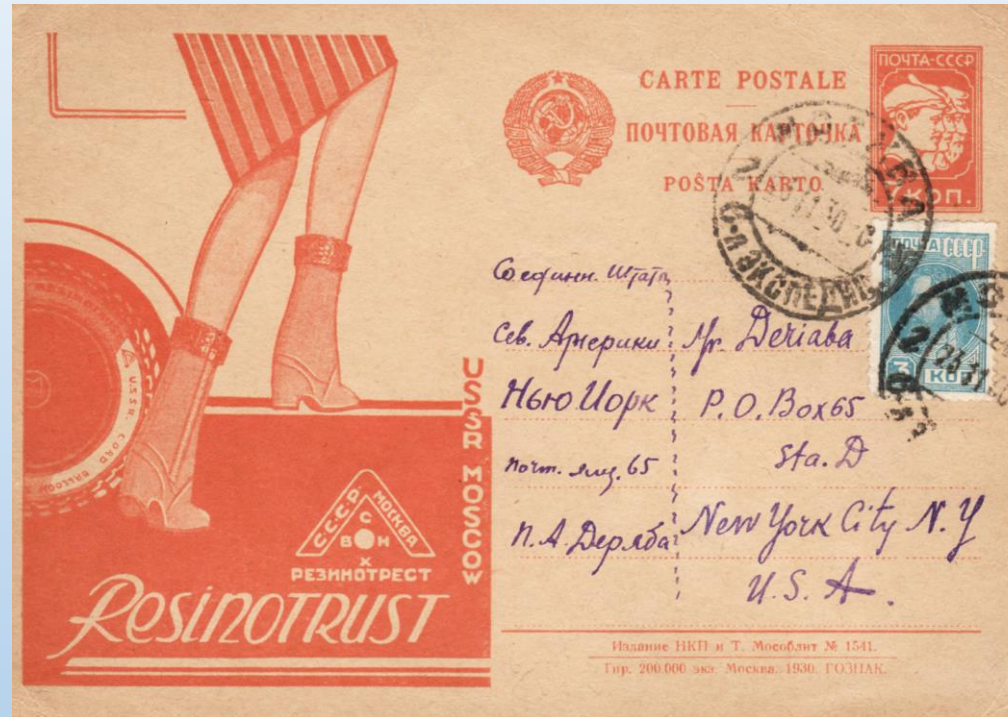 CARTE POSTALE
ПОЧТОВАЯ КАРТОЧКА
POŜTA KARTO
ПОЧТА-СССР
КОП.
МОСКВА
23.11.30
ЭКСПЕДИЦ
ПОЧТА СССР
3 КОП
2
23.11.30
Соединн. Штаты
Сев. Америки
Нью Йорк
почт. ящ. 65
П. А. Деряба
Mr. Deriaba
P. O. Box 65
Sta. D
New York City N. Y
U. S. A.
U.S.S.R. CORD BALLOON
USSR MOSCOW
СССР МОСКВА
РЕЗИНОТРЕСТ
Resinotrust
Издание НКП и Т. Мособлит № 1541.
Тир. 200.000 экз. Москва. 1930. ГОЗНАК.